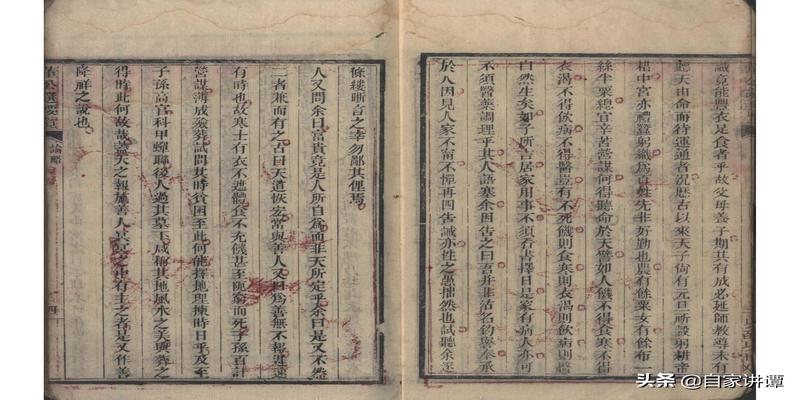 誠竟能豐衣足食者乎故父母養子期其有成必延師教導未有
聽天由命而待運通者況歷古以來天子尚有元旦祈穀躬耕帝
耤中宮亦禮蠶躬織為百姓先非好勤也農有餘粟女有餘布一
絲生粟總官辛苦營謀何得聽命於天譬如人饑不得食寒不得
衣渴不得飲病不得醫豈有不死饑則食寒則衣渴則飲病則醫
自然生矣如子所言居家用事不須看書擇日是家有病人亦可
不須醫藥調理乎其人語塞余因告之曰吾并非沽名釣譽奉承
於人因見人家不甯不憚再四告誡亦性之愚拙然也試聽余逐
條縷晰言之幸勿鄙其俚焉
人又問余曰富貴竟是人所自為而非天所定乎余曰是又不然
二者兼而有之古曰天道恢宏常與善人又曰為善無不報遲速
有時也故寒士有衣不遮體食不充饑甚至阨窮而死子孫百計
營謀薄成殮葬試問其時貧困至此何能擇地理揀時日乎及至
子孫高官科甲蟬聯後人過其墓下咸稱其地風水之美與葬之
得時此何故哉蓋天之報施善人冥冥之中有主之者是又作善
降祥之說也
四
头条 @自家讲谭